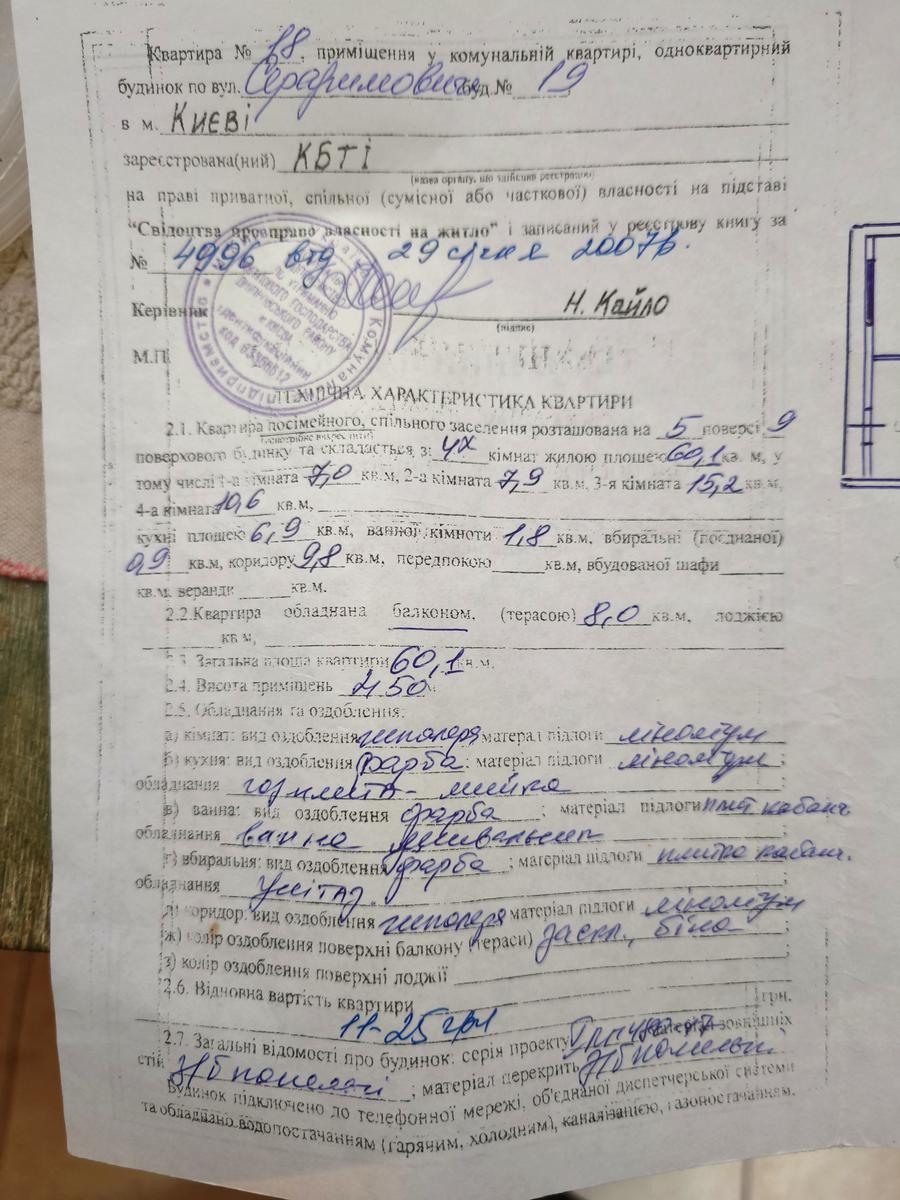 Квартира № 18, приміщення у комунальній квартирі, одноквартирний
будинок по вул. Серафимовича буд.№ 19
в м. Києві
зареєстрована(ний) КБТІ
(назва органу, що здійснив реєстрацію)
на праві приватної, спільної (сумісної або часткової) власності на підставі
“Свідоцтва про право власності на житло” і записаний у реєстрову книгу за
№ 4996 від 29 січня 2007р.
Керівник Н. Кайло
(підпис)
М.П.
ТЕХНІЧНА ХАРАКТЕРИСТИКА КВАРТИРИ
2.1. Квартира посімейного, спільного заселення розташована на 5 поверсі 9
(непотрібне викреслити)
поверхового будинку та складається з: 4х кімнат жилою площею 60,1 кв. м, у
тому числі 1-а кімната 7,0 кв.м, 2-а кімната 7,9 кв.м, 3-я кімната 15,2 кв.м,
4-а кімната 10,6 кв.м,
кухні площею 6,9 кв.м, ванної кімноти 1,8 кв.м, вбиральні (поєднаної)
0,9 кв.м, коридору 9,8 кв.м, передпокою кв.м, вбудованої шафи
кв.м, веранди кв.м.
2.2.Квартира обладнана балконом, (терасою) 8,0 кв.м, лоджією
кв.м,
2.3. Загальна площа квартири 60,1 кв.м.
2.4. Висота приміщень 250 м
2.5. Обладнання та оздоблення:
а) кімнат: вид оздоблення шпалера матерал підлоги ліноліум
б) кухня: вид оздоблення фарба; матеріал підлоги ліноліум;
обладнання газ плита - мийка;
в) ванна: вид оздоблення фарба; матеріал підлоги плит кабанч
обладнання ванна умивальник;
г) вбиральня: вид оздоблення фарба; матеріал підлоги плитка кабанч.
обладнання унітаз;
д) коридор: вид оздоблення шпалера матеріал підлоги ліноліум
ж) колір оздоблення поверхні балкону (тераси) заскл., біла;
з) колір оздоблення поверхні лоджії
2.6. Відновна вартість квартири грн.
11-25 грн
2.7. Загальні відомості про будинок: серія проекту матеріал зовнішніх
стін З/б панелі; матеріал перекрить З/б панельн
Будинок підключено до телефонної мережі, об'єднаної диспетчерської системи
та обладнано водопостачанням (гарячим, холодним), каналізацією, газопостачанням,